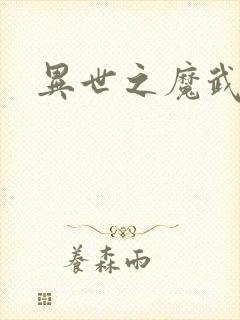 異世之魔武
養森雨